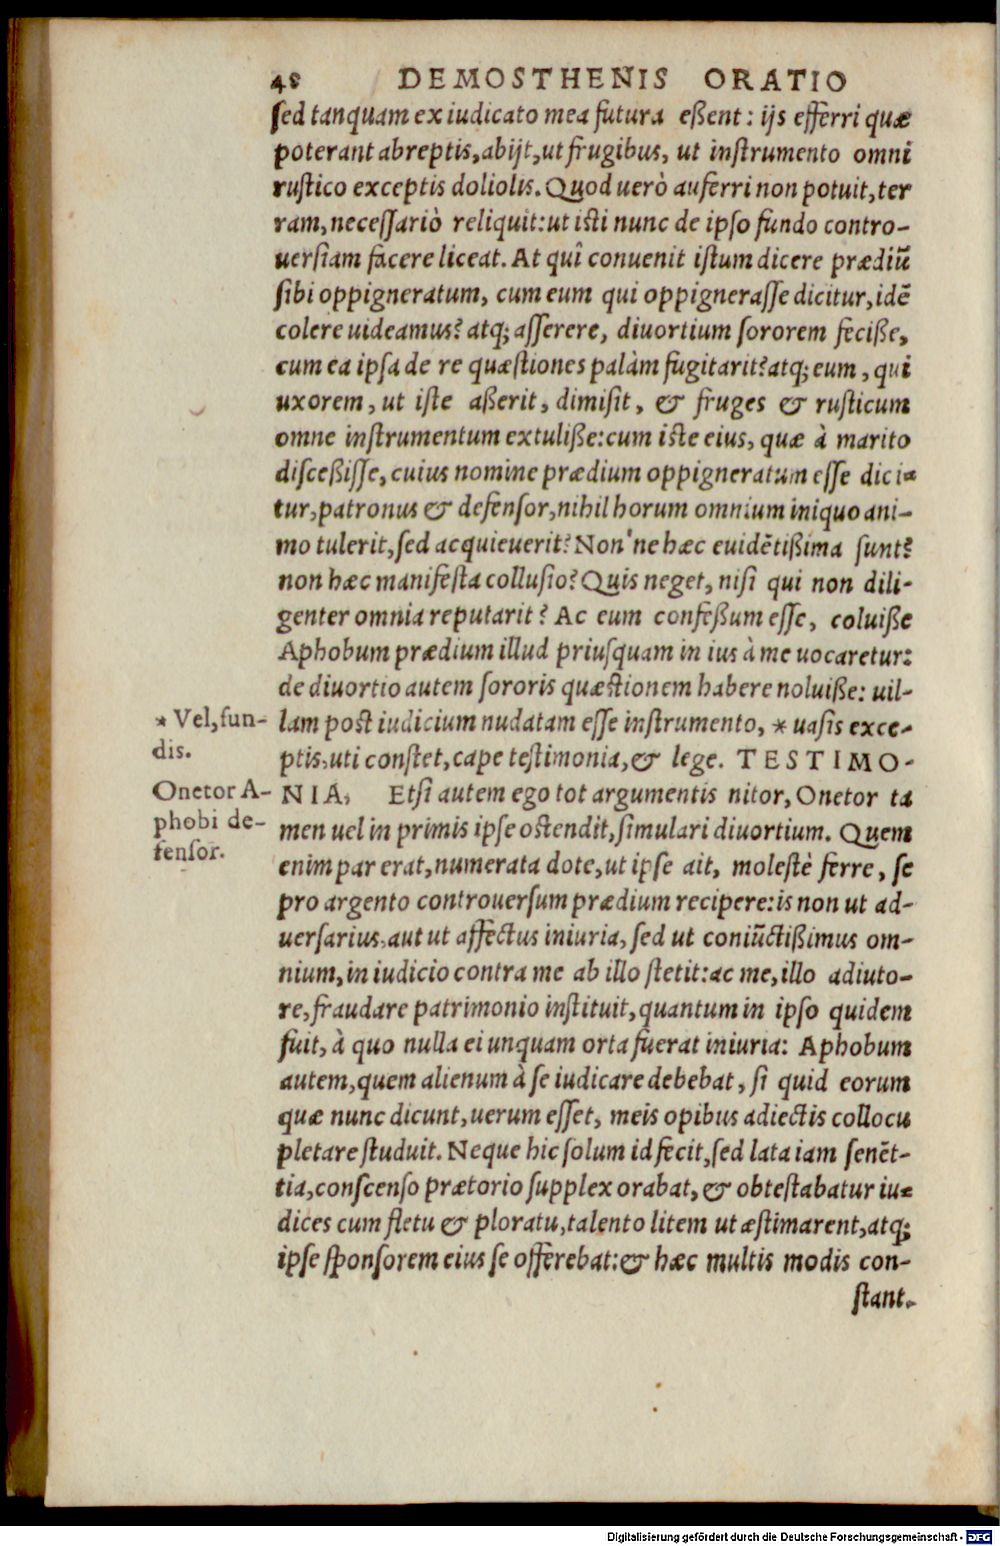 48 DEMOSTHENIS ORATIO
sed tanquam ex iudicato mea futura eßent: ijs efferri quæ
poterant abreptis, abijt, ut frugibus, ut instrumento omni
rustico exceptis doliolis. Quod uerò auferri non potuit, ter
ram, necessariò reliquit: ut isti nunc de ipso fundo contro-
uersiam facere liceat. At quî conuenit istum dicere prædiū
sibi oppigneratum, cum eum qui oppignerasse dicitur, idē
colere uideamus? atq; asserere, diuortium sororem feciße,
cum ea ipsa de re quæstiones palàm fugitarit? atq; eum, qui
uxorem, ut iste aßerit, dimisit, & fruges & rusticum
omne instrumentum extuliße: cum iste eius, quæ à marito
disceßisse, cuius nomine prædium oppigneratum esse dici-
tur, patronus & defensor, nihil horum omnium iniquo ani-
mo tulerit, sed acquieuerit? Non'ne hæc euidētißima sunt?
non hæc manifesta collusio? Quis neget, nisi qui non dili-
genter omnia reputarit? Ac eum confeßum esse, coluiße
Aphobum prædium illud priusquam in ius à me uocaretur:
de diuortio autem sororis quæstionem habere noluiße: uil-
* Vel, fun-
dis.
lam post iudicium nudatam esse instrumento, * uasis exce-
ptis, uti constet, cape testimonia, & lege. TESTIMO-
Onetor A-
phobi de-
fensor.
NIA, Etsi autem ego tot argumentis nitor, Onetor ta
men uel in primis ipse ostendit, simulari diuortium. Quem
enim par erat, numerata dote, ut ipse ait, molestè ferre, se
pro argento controuersum prædium recipere: is non ut ad-
uersarius, aut ut affectus iniuria, sed ut coniūctißimus om-
nium, in iudicio contra me ab illo stetit: ac me, illo adiuto-
re, fraudare patrimonio instituit, quantum in ipso quidem
fuit, à quo nulla ei unquam orta fuerat iniuria: Aphobum
autem, quem alienum à se iudicare debebat, si quid eorum
quæ nunc dicunt, uerum esset, meis opibus adiectis collocu
pletare studuit. Neque hic solum id fecit, sed lata iam senēt-
tia, conscenso prætorio supplex orabat, & obtestabatur iu-
dices cum fletu & ploratu, talento litem ut æstimarent, atq;
ipse sponsorem eius se offerebat: & hæc multis modis con-
stant.
Digitalisierung gefördert durch die Deutsche Forschungsgemeinschaft - DFG